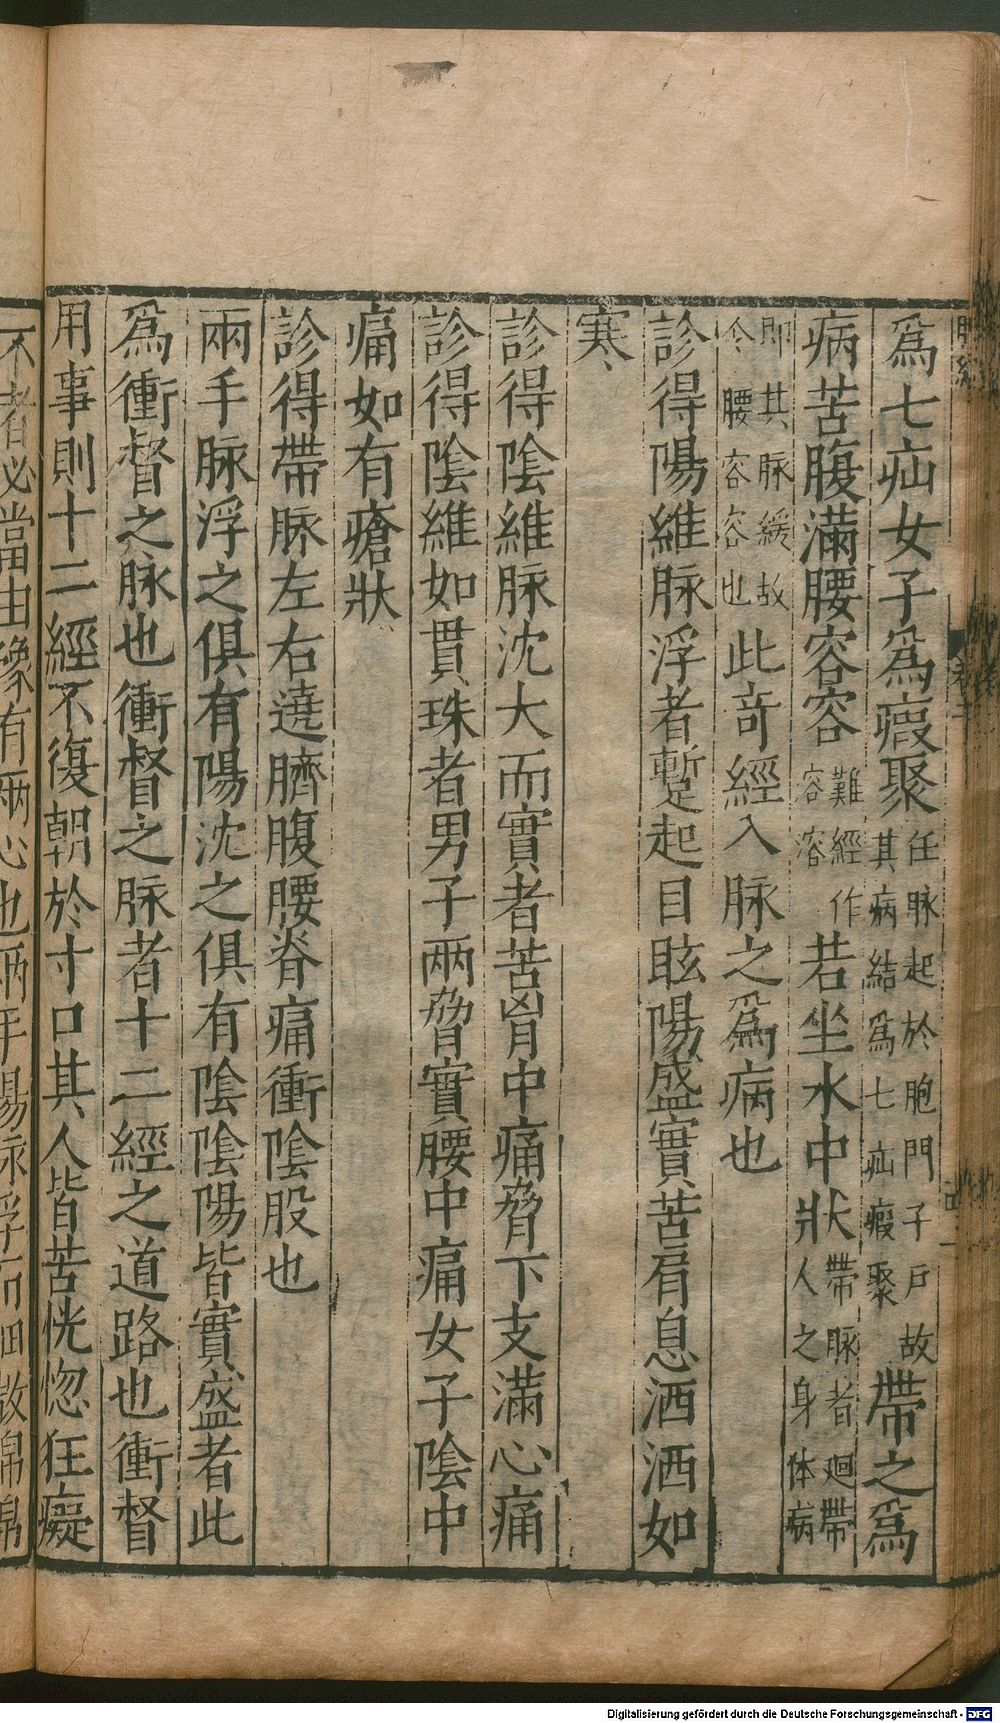 爲七疝女子爲瘕聚任脉起於胞門子戶故其病結爲七疝瘕聚帶之爲
病苦腹滿腰容容難經作容溶若坐水中狀帶脉者廻帶人之身体病
即其脉緩故令腰容容也此奇經入脉之爲病也
診得陽維脉浮者蹔起目眩陽盛實苦肩息洒洒如
寒
診得陰維脉沈大而實者苦胷中痛脅下支滿心痛
診得陰維如貫珠者男子兩脅實腰中痛女子陰中
痛如有瘡狀
診得帶脉左右遶臍腹腰脊痛衝陰股也
兩手脉浮之俱有陽沈之俱有陰陰陽皆實盛者此
爲衝督之脉也衝督之脉者十二經之道路也衝督
用事則十二經不復朝於寸口其人皆苦恍惚狂癡
不者必當由豫有兩心也兩手陽脉浮而細微綿綿
Digitalisierung gefördert durch die Deutsche Forschungsgemeinschaft - DFG